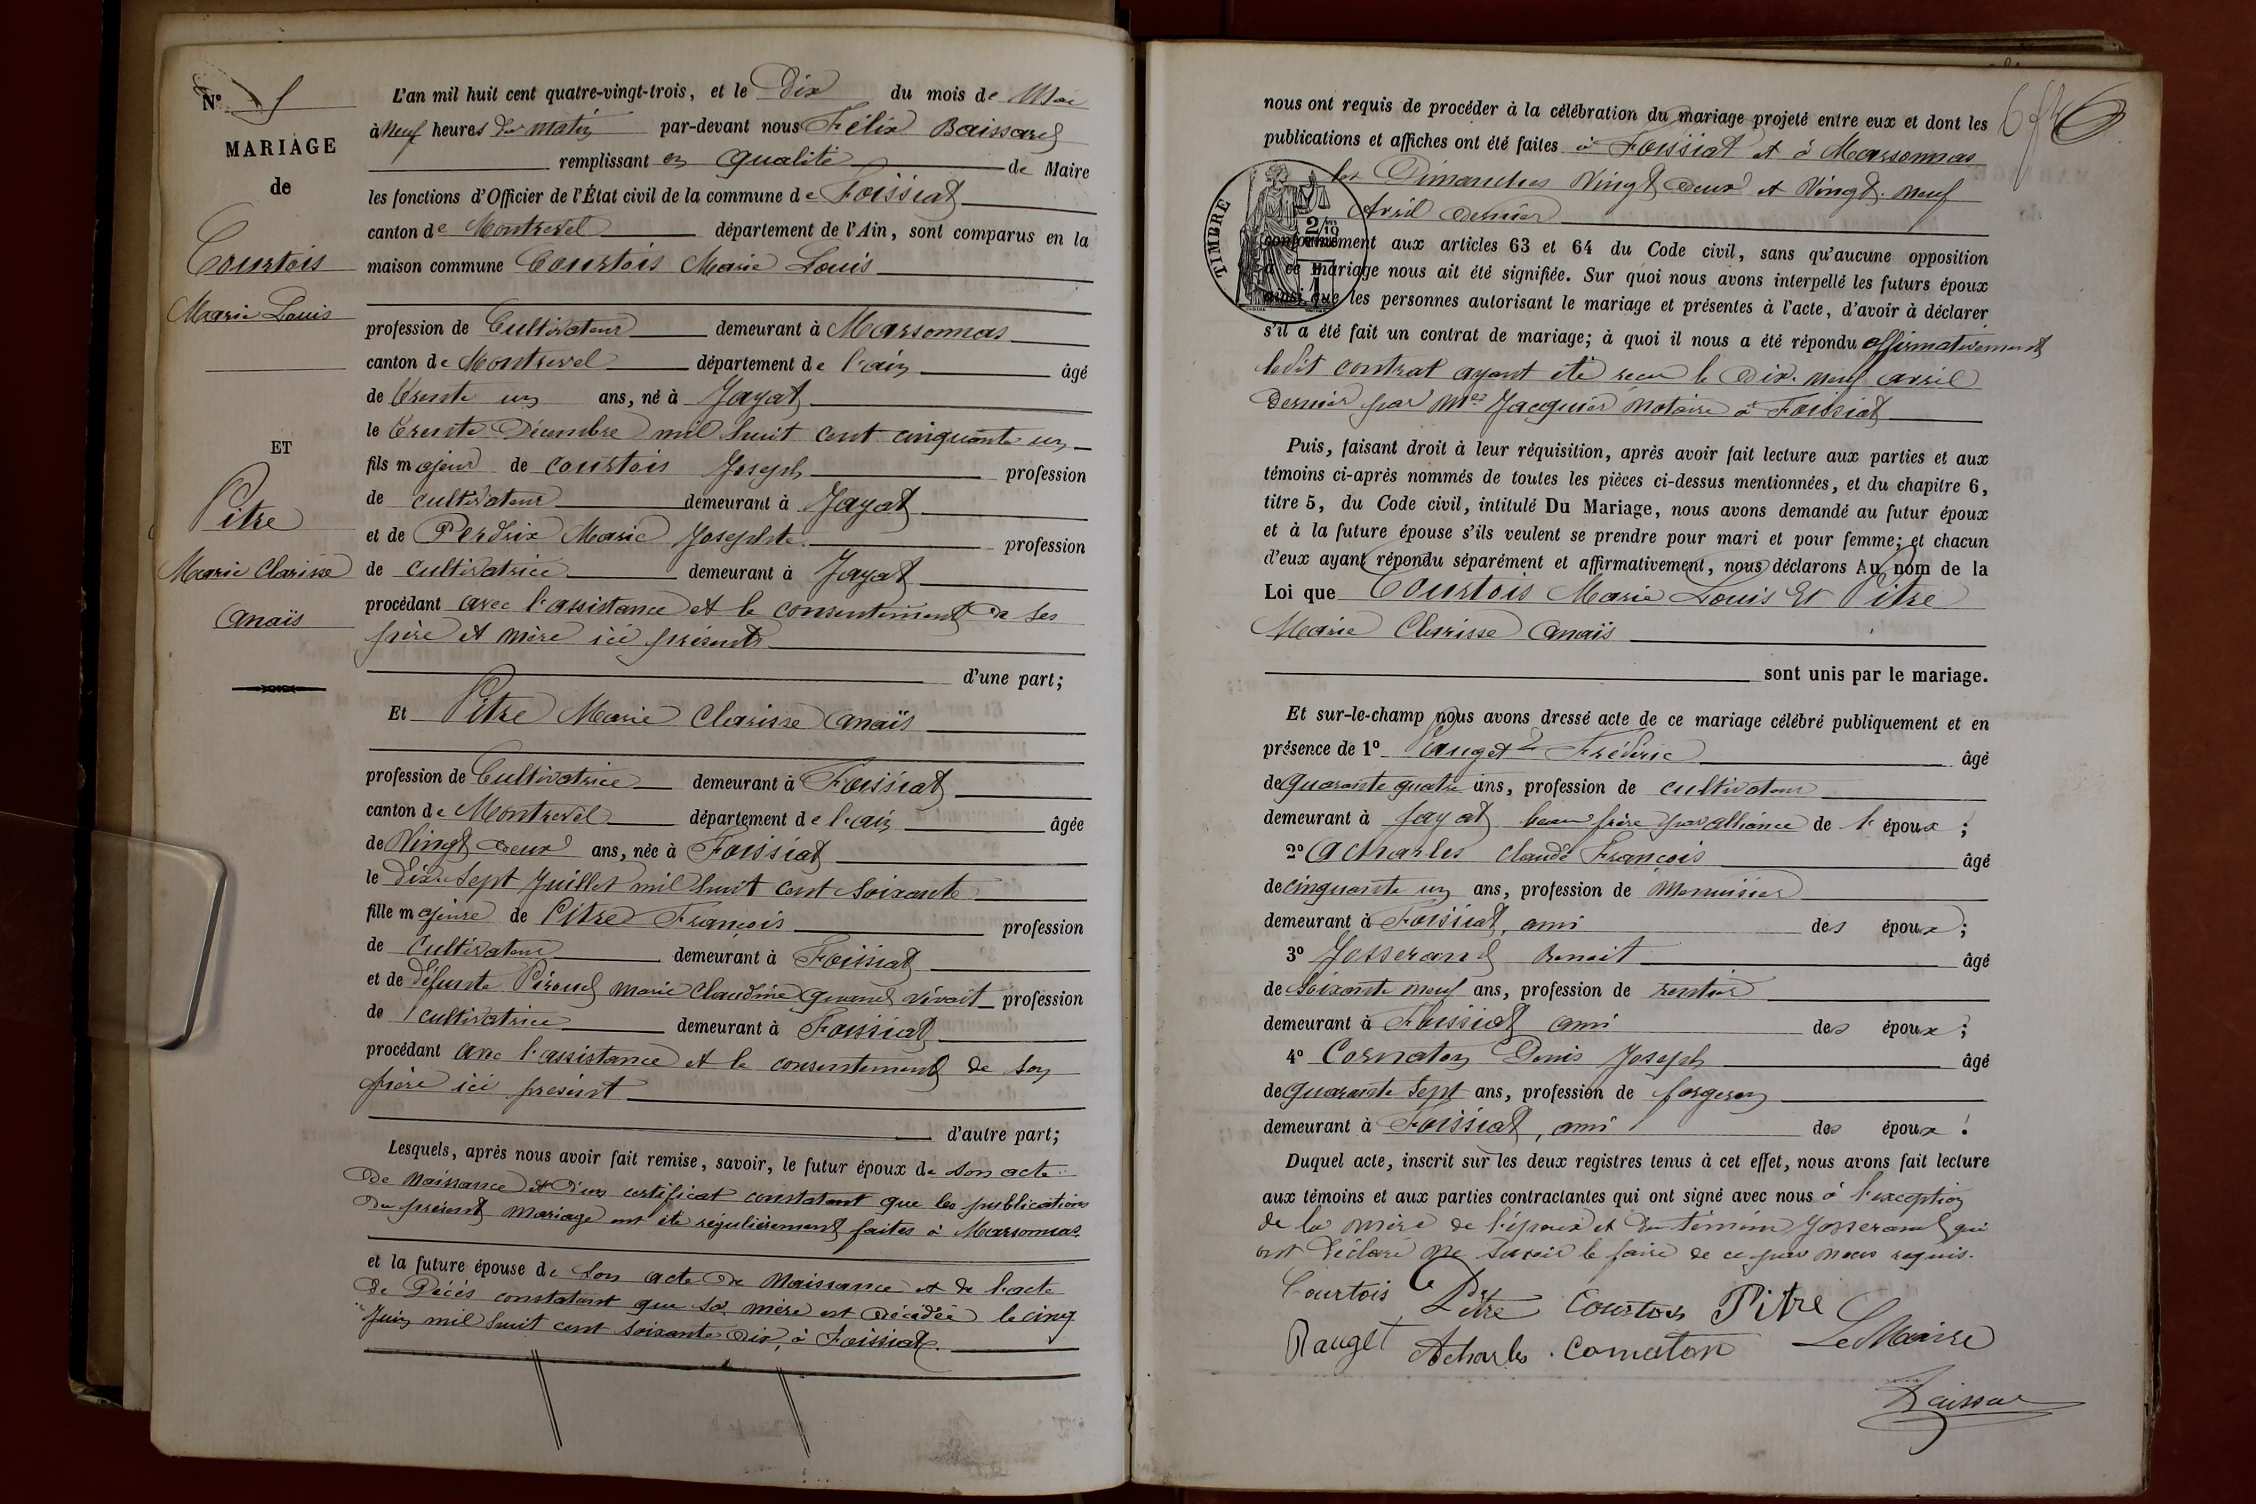 N° 5
MARIAGE
de
Courtois
Marie Louis
ET
Pitre
Marie Clarisse
Anaïs
L'an mil huit cent quatre-vingt-trois, et le Dix du mois de Mai
à Neuf heures du matin par-devant nous Félix Baissard
remplissant en qualité de Maire
les fonctions d'Officier de l'État civil de la commune de Foissiat
canton de Montrevel département de l'Ain, sont comparus en la
maison commune Courtois Marie Louis
profession de Cultivateur demeurant à Marsonnas
canton de Montrevel département de l'ain âgé
de trente un ans, né à Jayat
le trente Décembre mil huit cent cinquante un
fils majeur de Courtois Joseph profession
de cultivateur demeurant à Jayat
et de Perdrix Marie Josephte profession
de cultivatrice demeurant à Jayat
procédant avec l'assistance et le consentement de ses
père et mère ici présents
d'une part;
Et Pitre Marie Clarisse Anaïs
profession de Cultivatrice demeurant à Foissiat
canton de Montrevel département de l'ain âgée
de Vingt deux ans, née à Foissiat
le Dix-Sept Juillet mil huit cent soixante
fille majeure de Pitre François profession
de cultivateur demeurant à Foissiat
et de défunte Piroud Marie Claudine quand vivait profession
de cultivatrice demeurant à Foissiat
procédant avec l'assistance et le consentement de son
père ici présent
d'autre part;
Lesquels, après nous avoir fait remise, savoir, le futur époux de son acte
de naissance et d'un certificat constatant que les publications
du présent mariage ont été régulièrement faites à Marsonnas
et la future épouse de son acte de Naissance et de l'acte
de Décès constatant que sa mère est décédée le cinq
Juin mil huit cent soixante dix, à Foissiat.
nous ont requis de procéder à la célébration du mariage projeté entre eux et dont les
publications et affiches ont été faites à Foissiat et à Marsonnas
les Dimanches Vingt deux et Vingt-neuf
Avril dernier
TIMBRE
conformément aux articles 63 et 64 du Code civil, sans qu'aucune opposition
à ce mariage nous ait été signifiée. Sur quoi nous avons interpellé les futurs époux
ainsi que les personnes autorisant le mariage et présentes à l'acte, d'avoir à déclarer
s'il a été fait un contrat de mariage; à quoi il nous a été répondu affirmativement
ledit contrat ayant été recu le Dix-neuf avril
dernier par Me Jacquier Notaire à Foissiat
Puis, faisant droit à leur réquisition, après avoir fait lecture aux parties et aux
témoins ci-après nommés de toutes les pièces ci-dessus mentionnées, et du chapitre 6,
titre 5, du Code civil, intitulé Du Mariage, nous avons demandé au futur époux
et à la future épouse s'ils veulent se prendre pour mari et pour femme; et chacun
d'eux ayant répondu séparément et affirmativement, nous déclarons Au nom de la
Loi que Courtois Marie Louis Et Pitre
Marie Clarisse Anaïs
sont unis par le mariage.
Et sur-le-champ nous avons dressé acte de ce mariage célébré publiquement et en
présence de 1° Pauget Frédéric âgé
de quarante quatre ans, profession de cultivateur
demeurant à Jayat beau frère par alliance de l'époux ;
2° Acharles Claude François âgé
de cinquante un ans, profession de Menuisier
demeurant à Foissiat, ami des époux ;
3° Josserand Benoit âgé
de soixante neuf ans, profession de rentier
demeurant à Foissiat ami des époux ;
4° Cornaton Denis Joseph âgé
de quarante sept ans, profession de forgeron
demeurant à Foissiat, ami des époux .
Duquel acte, inscrit sur les deux registres tenus à cet effet, nous avons fait lecture
aux témoins et aux parties contractantes qui ont signé avec nous à l'exception
de la mère de l'époux et du témoin Josserand qui
ont déclaré ne savoir le faire de ce par nous requis.
Courtois Pitre Courtois Pitre
Pauget Acharles Cornaton Le Maire
Baissard